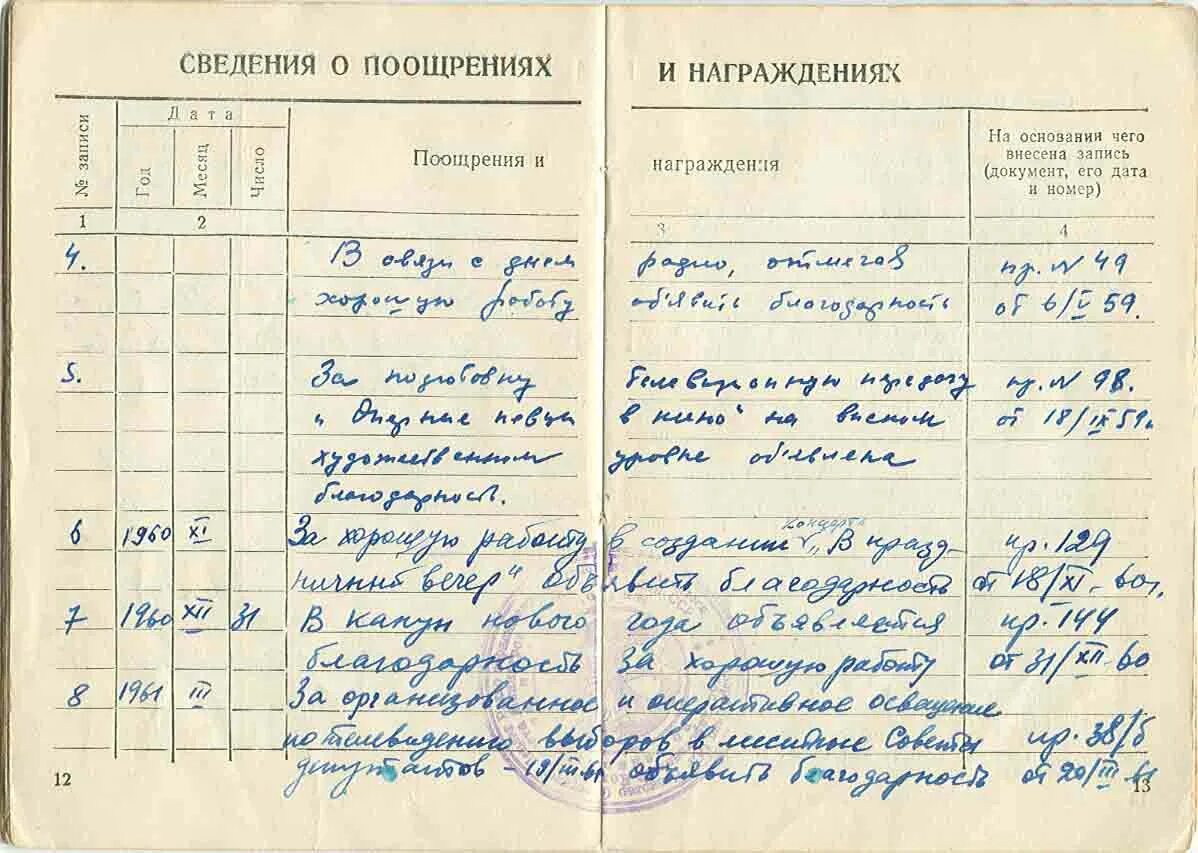 СВЕДЕНИЯ О ПООЩРЕНИЯХ И НАГРАЖДЕНИЯХ
№ записи
Дата
Год
Месяц
Число
Поощрения и награждения
На основании чего
внесена запись
(документ, его дата
и номер)
1 2 3 4
4. В связи с днем радио, отмечая пр. № 49
хорошую работу объявить благодарность от 6/V 59.
5. За подготовку телевизионную передачу пр. № 98.
"Оперные певцы в кино" на высоком от 18/IX 59г.
художественном уровне объявлена
благодарность.
концерта
6 1960 XI За хорошую работу в создании "В празд- пр. 129
ничный вечер" объявить благодарность от 18/XI-60г.
7 1960 XII 31 В канун нового года объявляется пр. 144
благодарность за хорошую работу от 31/XII-60
8 1961 III За организованное и оперативное освещение
по телевидению выборов в местные Советы пр. 38/б
депутатов - 19/III-61 объявить благодарность от 20/III-61
12 13